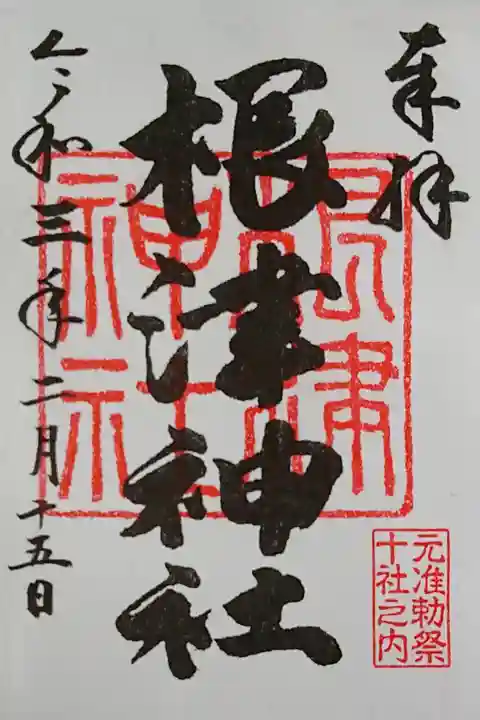 奉拝
根津神社
令和三年二月十五日
根津
神社
元准勅祭
十社之内